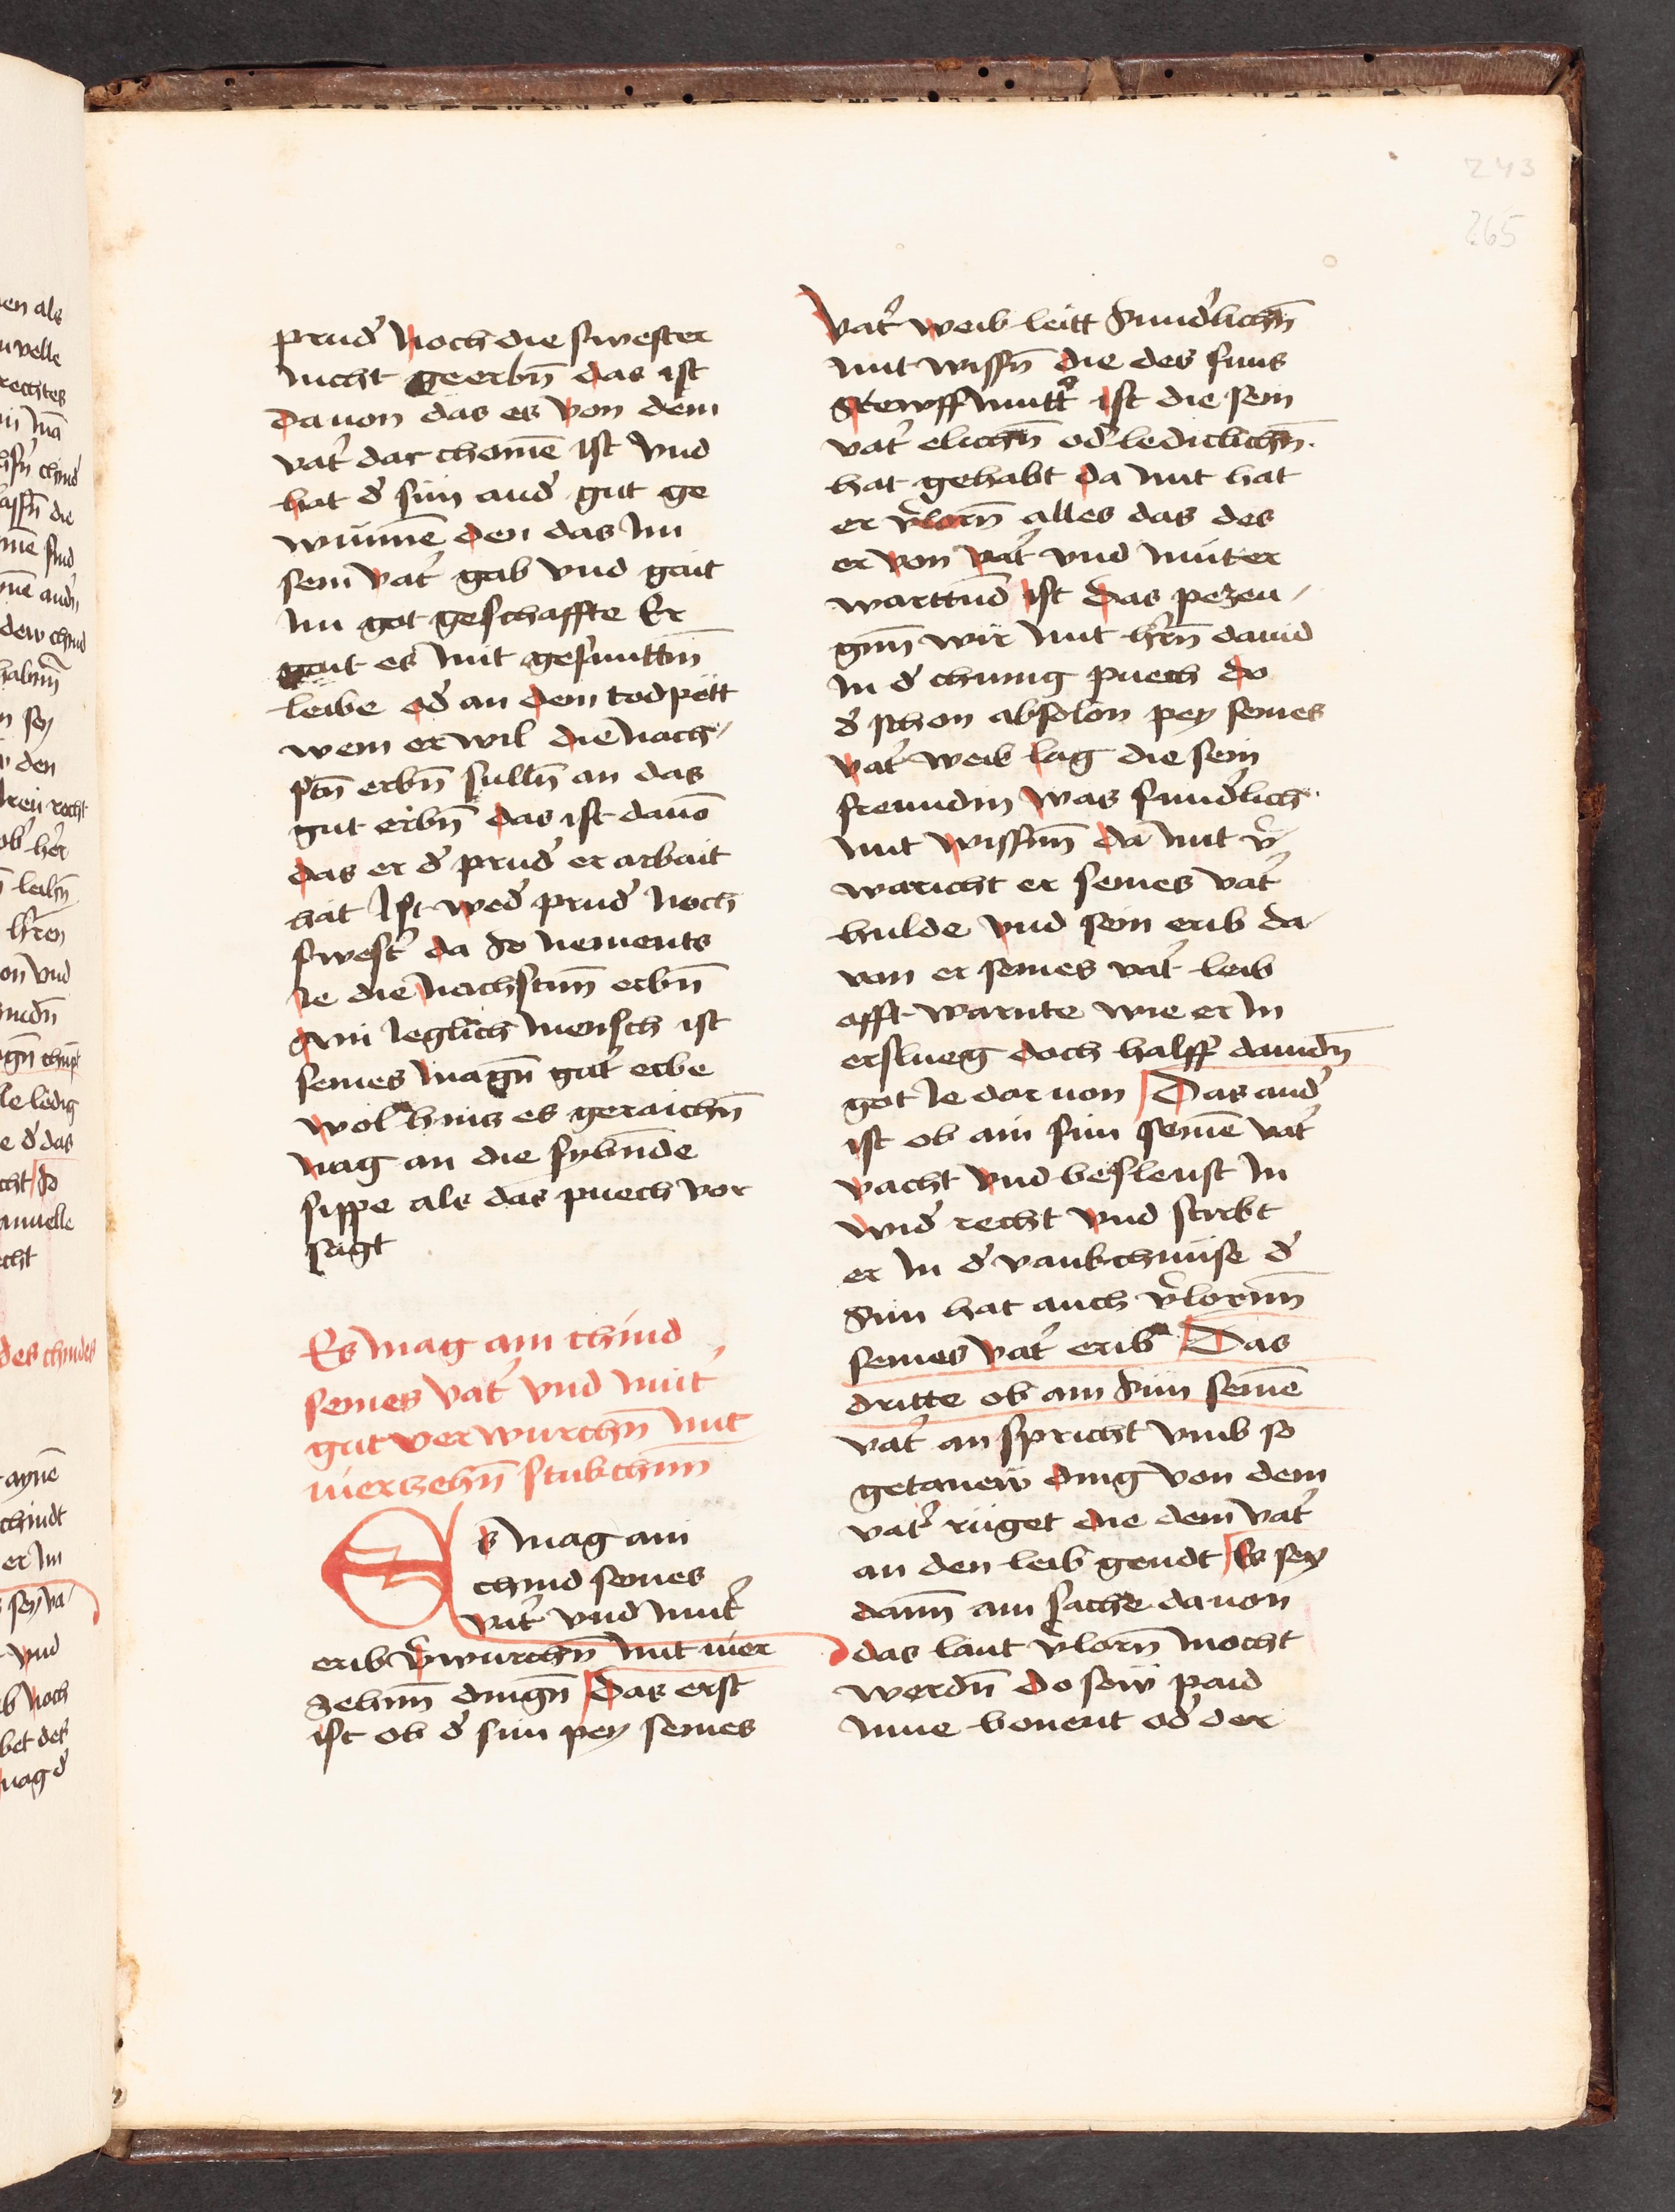 243
265
prud̉ noch die swester
nicht geerbn̄ das ist
dauon das es von dem
vat̉ dar chomē ist vnd
hat d̉ sun and̉ gut ge
wunnē den das im
sein vat̉ gab vnd gait
im got geschaffte Er
gait es mit gesunttm̄
leibe od̉ an dem todpëtt
wem er wil die nach /
stn̄ erbn̄ sulln̄ an das
gut erbn̄ das ist dauō
das er d̉ prud̉ er arbait
hat Ist wed̉ prud̉ noch
swest̉ da so nements
ie die nachstnn̄ erbn̄
ain ieglich mensch ist
seines magn̄ gut̉ erbe
wol hins es geraichn̄
mag an die sybn̄de
sippe als das puech vor
sagt
Es mag ain chind
seines vat̉ vnd mut̉
gut verwurchn̄ mit
uierzehn̄ stukchnn̄
Es mag ain
chind seines
vat̉ vnd mut̉
erib v̉wurchn̄ mit uier
zehnn̄ dingn̄ Das erst
ist ob d̉ sun pey seines
vat̉ weib leitt sund̉lichn̄
mit wissn̄ die des suns
stewffmutt̉ ist die sein
vat̉ elichn̄ od̉ lediclichn̄
hat gehabt da mit hat
er v̉lorn̄ alles das des
er von vat̉ vnd muter
warttnd̄ ist das pezeu /
gnn̄ wir mit h̉rn̄ dauid
in d̉ chunig puech do
d̉ schon absolon pey seines
vat̉ weib lag die sein
freundin was sund̉lich
mit wissnn̄ da mit v̉
waricht er seines vat̉
hulde vnd sein erib da
von er seines vat̉ leib
offt warnte wie er in
erslueg doch halff dauidn̄
got ie dar uon Das and̉
ist ob ain sun seinē vat̉
vacht vnd besleust in
wid̉ recht vnd stirbt
er in d̉ vankchnuse d̉
sun hat auch v̉lornn̄
seines vat̉ erib Das
dritte ob ain sun seinē
vat̉ an spricht vmb so
getanew ding von dem
vat̉ rüget die dem vat̉
an den leib gendt Es sey
dann̄ ain sache dauon
das lant v̉lorn̄ mocht
werdn̄ do sew paid
inne bonent od̉ der